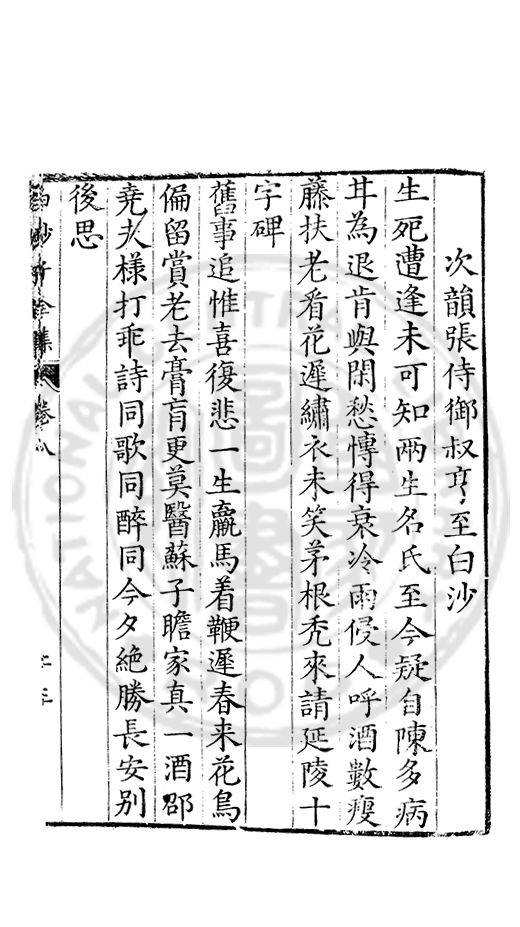 次韻張侍御叔亨至白沙
生死遭逢未可知兩生名氏至今疑自陳多病
甘為退肯與閑愁博得衰冷雨侵人呼酒數瘦
藤扶老看花遲繡衣未笑茅根禿來請延陵十
字碑
舊事追惟喜復悲一生羸馬着鞭遲春来花鳥
偏留賞老去膏肓更莫醫蘇子瞻家真一酒邵
堯夫様打乖詩同歌同醉同今夕絶勝長安别
後思
白沙子全集
卷八